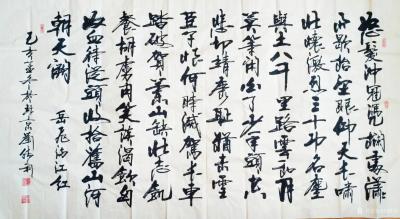 怒髮冲冠凭欄處瀟
雨歇抬望眼仰天長嘯
壯懷激烈三十功名塵
與土八千里路雲和月
莫等閑白了少年頭空
悲切靖康耻猶未雪
臣子恨何時滅駕長車
踏破賀蘭山缺壯志飢
餐胡虜肉笑談渴飲匈
奴血待從頭收拾舊山河
朝天闕 岳飛滿江红
己亥